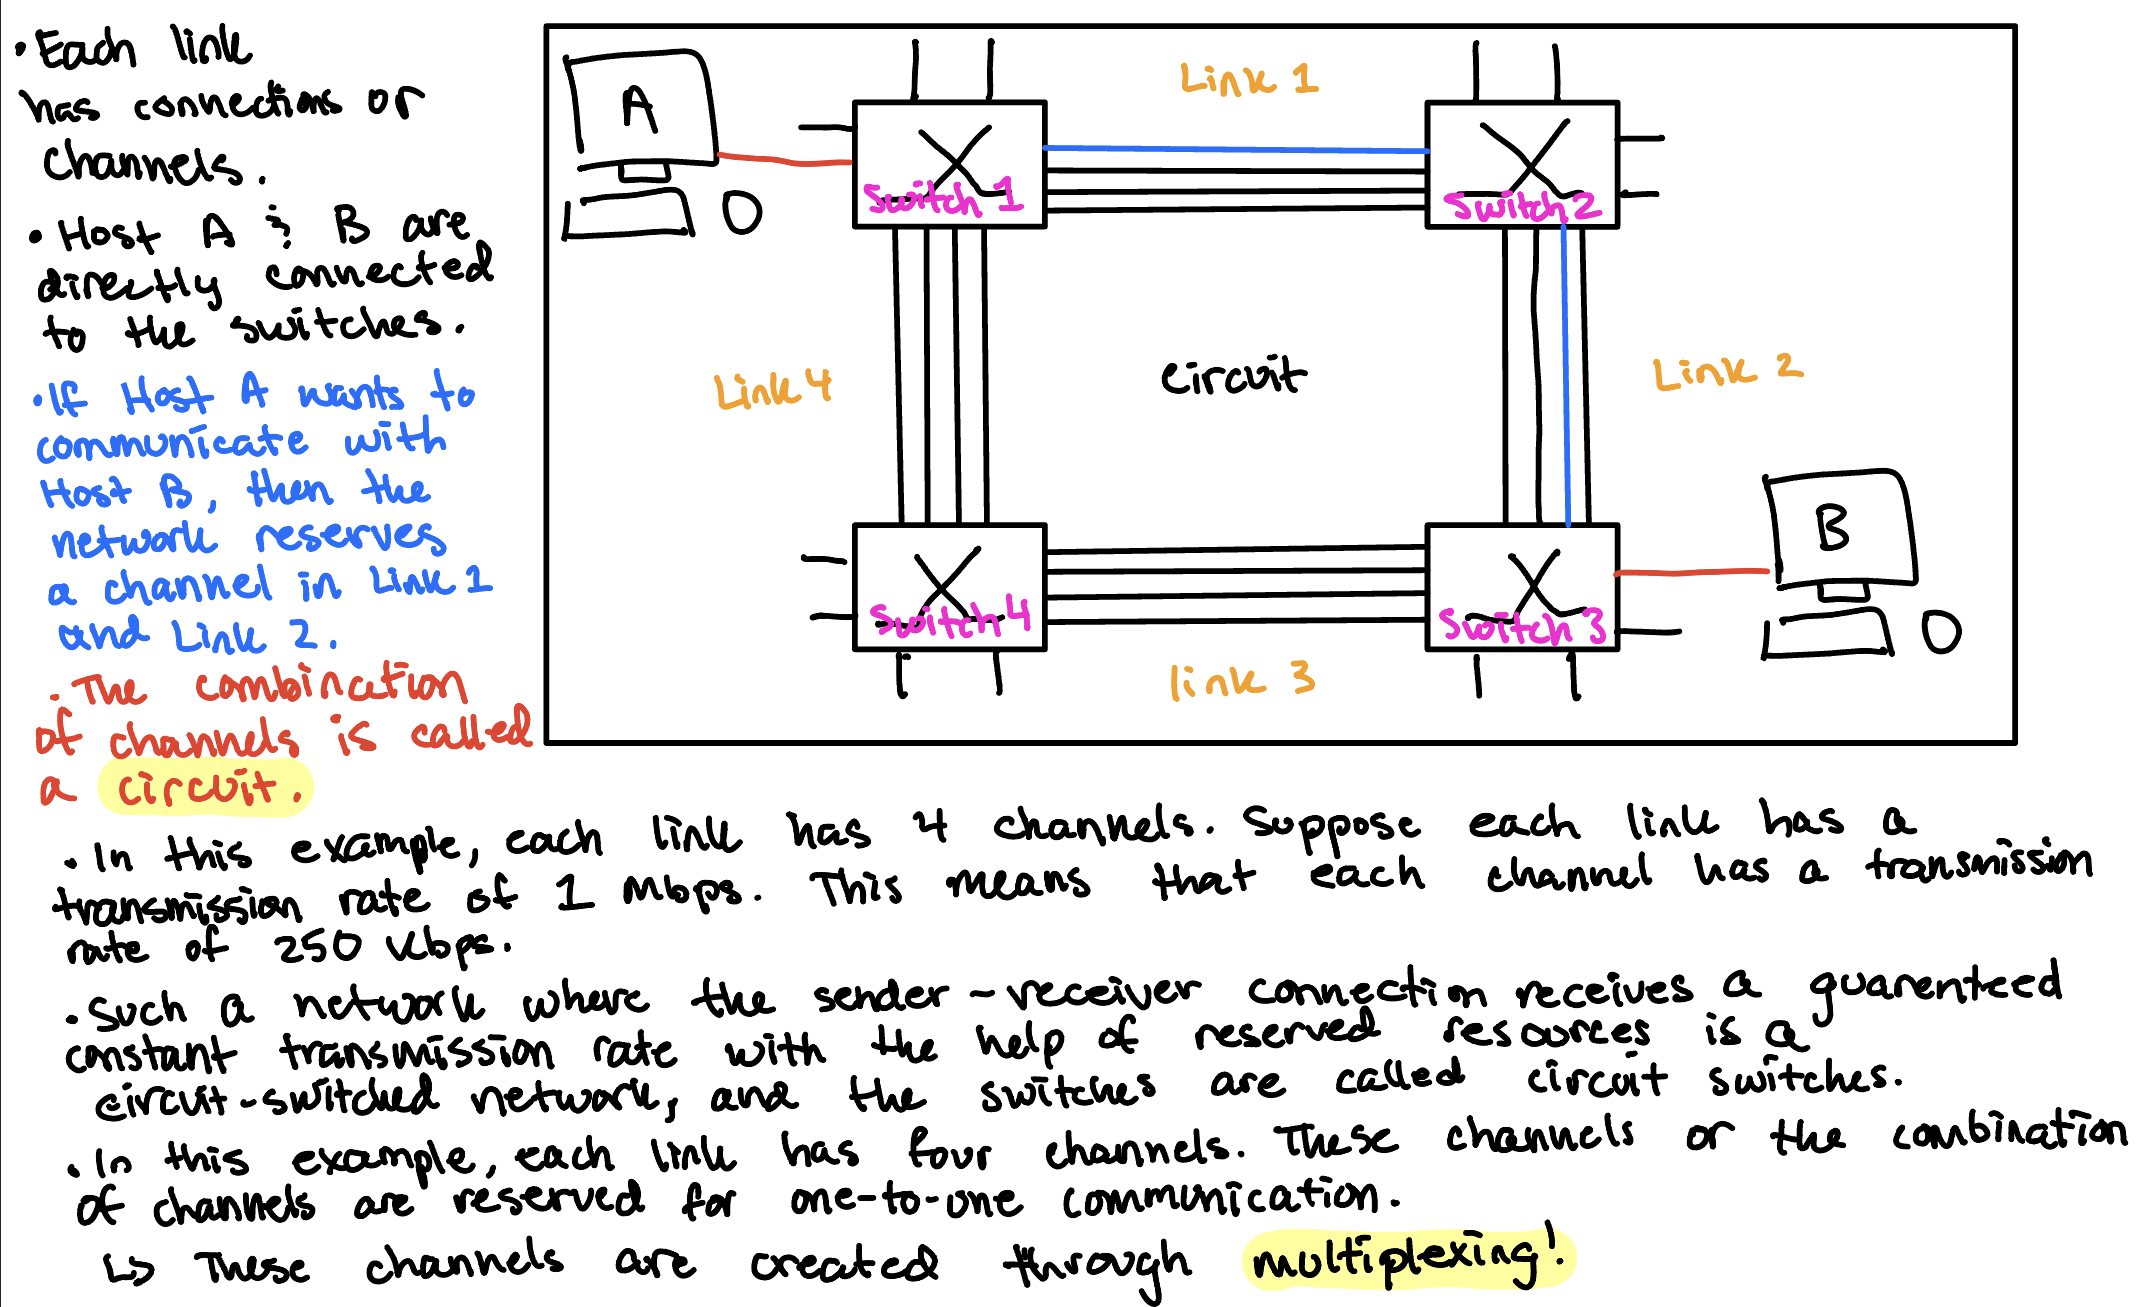 • Each link
has connections or
channels.
• Host A & B are
directly connected
to the switches.
• If Host A wants to
communicate with
Host B, then the
network reserves
a channel in Link 1
and Link 2.
• The combination
of channels is called
a circuit.
A
Link 1
Switch 1
Switch 2
Link 4
circuit
Link 2
B
Switch 4
Switch 3
link 3
• In this example, each link has 4 channels. Suppose each link has a
transmission rate of 1 Mbps. This means that each channel has a transmission
rate of 250 Kbps.
• Such a network where the sender-receiver connection receives a guarenteed
constant transmission rate with the help of reserved resources is a
circuit-switched network, and the switches are called circuit switches.
• In this example, each link has four channels. These channels or the combination
of channels are reserved for one-to-one communication.
↳ These channels are created through multiplexing!